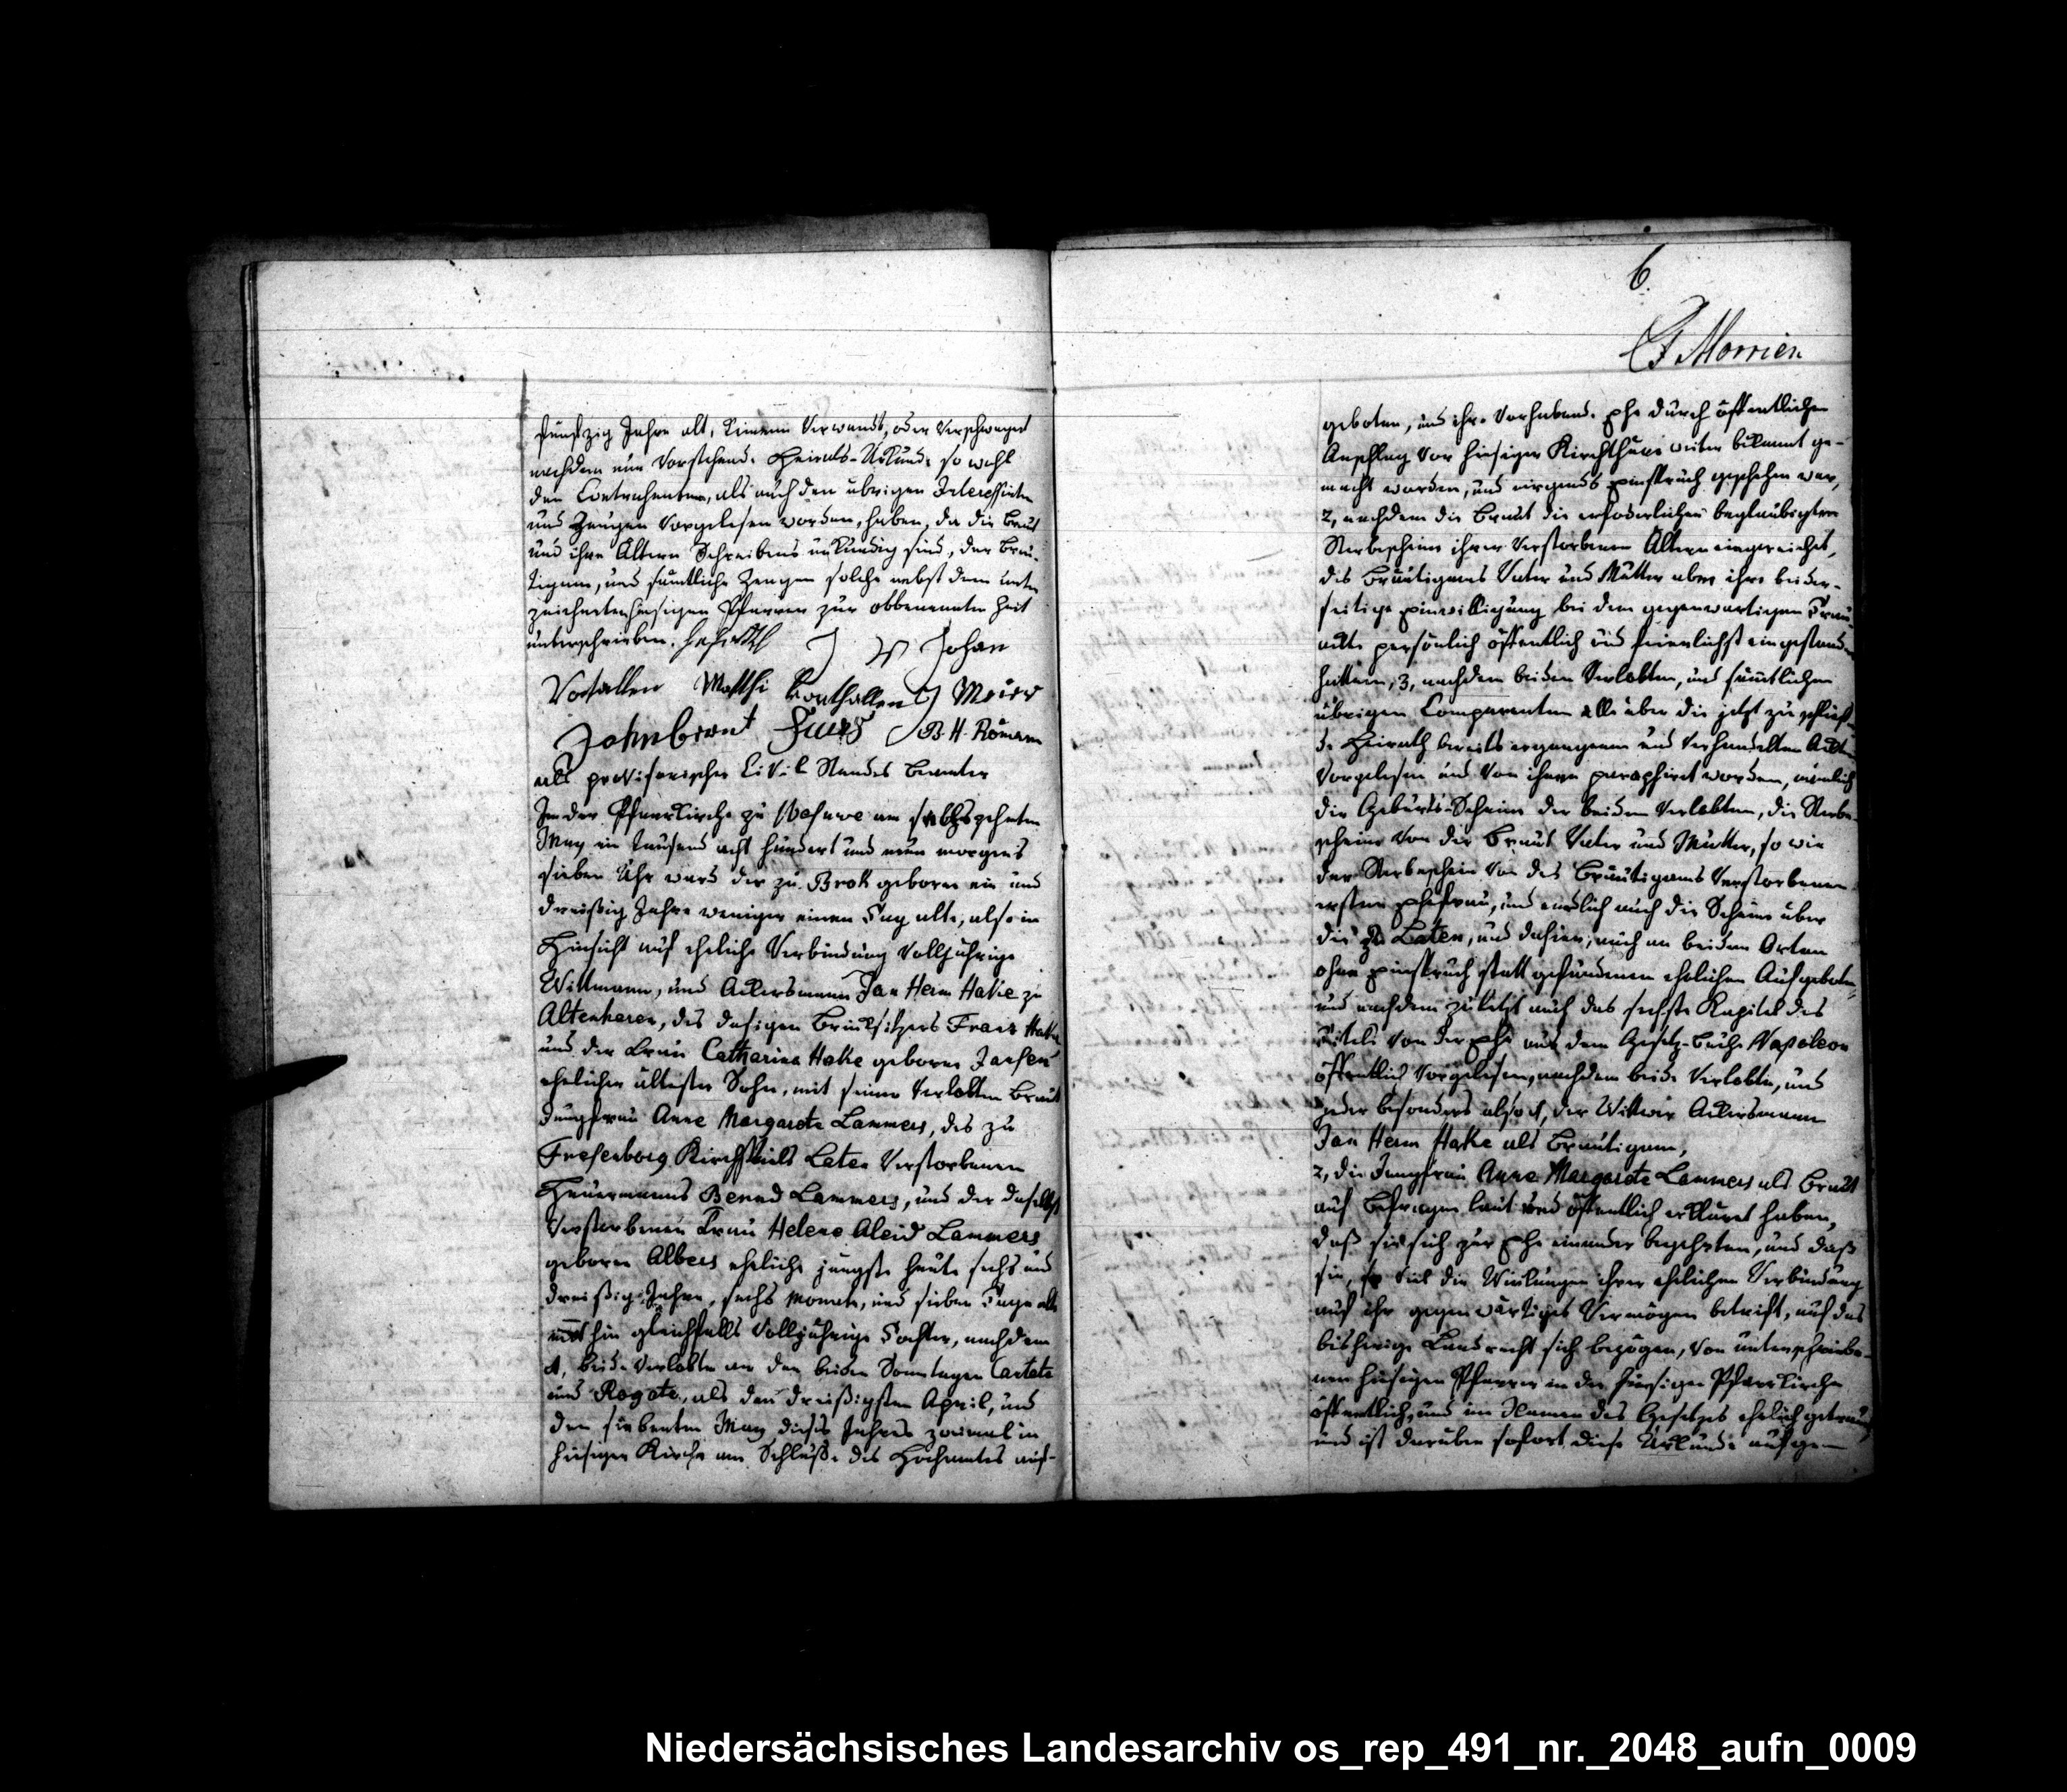 fünfzig Jahre alt, keinem Verwandt, oder Verschwagert
nachdem nun Vorstehende Heiraths-Urkunde so wohl
den Contrahenten, als auch den übrigen Interessirten
und Zeugen Vorgelesen worden, haben, da die Braut
und ihre Ältern Schreibens unkundig sind, der Bräu-
tigam, und sämtliche Zeugen solche nebst dem unter
zeichneten hiesigen Pfarrer zur obbenannten Zeit
unterschrieben. Johan
Matthi Meier
B. H. Römann
als provisorischer Civil Standes Beamter
In der Pfarrkirche zu Wesuwe am sechszehnten
May ein tausend acht hundert und neun morgens
sieben Uhr ward der zu Brok geborne ein und
dreißig Jahre weniger einen Tag alte, also in
Hinsicht auf eheliche Verbindung Volljährige
Wittmann, und Ackersmann Jan Herm Hake zu
Altenharen, des dasigen Brinksitzers Franz Hake
und der Frau Catharina Hake geborne Jansen
ehelicher ältester Sohn, mit seiner Verlobten Braut
Jungfrau Anne Margarete Lammers, des zu
Fresenborg Kirchspiels Laten Verstorbenen
Heuermanns Bernd Lammers, und der daselbst
Verstorbenen Frau Helene Aleid Lammers
geborne Albers eheliche jüngste heute sechs und
dreißig Jahre, sechs Monate, und sieben Tage alte
mithin gleichfalls Volljährige Tochter, nachdem
1, beide Verlobte an den beiden Sonntagen Cantate
und Rogate, als den dreißigsten April, und
den siebenten May dieses Jahres zweimal in
hiesiger Kirche am Schluße des Hochamtes auf-
6.
Morrien
geboten, und ihre Vorhabende Ehe durch öffentlichen
Anschlag Vor hiesiger Kirchthüre weiter bekannt ge-
macht worden, und nirgends Einspruch geschehen war,
2, nachdem die Braut die erfoderlichen beglaubigten
Sterbescheine ihrer Verstorbenen Ältern eingereichet,
des Bräutigams Vater und Mutter aber ihre beider-
seitige Einwilligung bei dem gegenwärtigen Trau-
ackte persönlich öffentlich und feierlichst eingestanden
hatten, 3, nachdem beiden Verlobten, und sämtlichen
übrigen Comparenten alle über die jetzt zu schließen-
de Heirath bereits ergangenen und Verhandelten Ackten
Vorgelesen und Von ihnen paraphirt worden, nämlich
die Geburts-Scheine der beiden Verlobten, die Sterbe-
scheine Von der Braut Vater und Mutter, so wie
der Sterbeschein Von des Bräutigams Verstorbenen
ersten Ehefrau, und endlich auch die Scheine über
die zu Laten, und dahier, auch an beiden Orten
ohne Einspruch statt gefundenen ehelichen Aufgebote,
und nachdem zuletzt auch das sechste Kapitel des
Titels Von der Ehe aus dem Gesetz-Buche Napoleon
öffentlich Vorgelesen, nachdem beide Verlobte, und
jeder besonders also 1, der Wittwer Ackersmann
Jan Herm Hake als Bräutigam,
2, die Jungfrau Anne Margarete Lammers als Braut
auf Befragen laut und öffentlich erkläret haben,
daß sie sich zur Ehe einander begehrten, und daß
sie, so viel die Wirkungen ihrer ehelichen Verbindung
auf ihr gegenwärtiges Vermögen betrift, auf das
bisherige Landrecht sich bezögen, Von unterschriebe-
nem hiesigen Pfarrer in der hiesigen Pfarrkirche
öffentlich, und im Namen des Gesetzes ehelich getrauet,
und ist darüber sofort diese Urkunde aufge-
Niedersächsisches Landesarchiv os_rep_491_nr._2048_aufn_0009